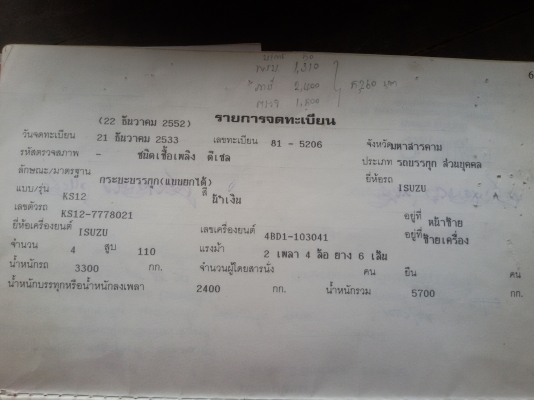 พรบ 1,310
ภาษี 2,400
5,260 บาท
ตรวจ 1,500
6
(22 ธันวาคม 2552) รายการจดทะเบียน
วันจดทะเบียน 21 ธันวาคม 2533 เลขทะเบียน 81 - 5206 จังหวัดมหาสารคาม
รหัสตรวจสภาพ - ชนิดเชื้อเพลิง ดีเซล ประเภท รถบรรทุก ส่วนบุคคล
ลักษณะ/มาตรฐาน กระบะบรรทุก(แบบยกได้) ยี่ห้อรถ ISUZU
แบบ/รุ่น KS12 สี น้ำเงิน
เลขตัวรถ KS12-7778021 อยู่ที่ หน้าซ้าย
ยี่ห้อเครื่องยนต์ ISUZU เลขเครื่องยนต์ 4BD1-103041 อยู่ที่ ซ้ายเครื่อง
จำนวน 4 สูบ 110 แรงม้า 2 เพลา 4 ล้อ ยาง 6 เส้น
น้ำหนักรถ 3300 กก. จำนวนผู้โดยสารนั่ง คน ยืน คน
น้ำหนักบรรทุกหรือน้ำหนักลงเพลา 2400 กก. น้ำหนักรวม 5700 กก.